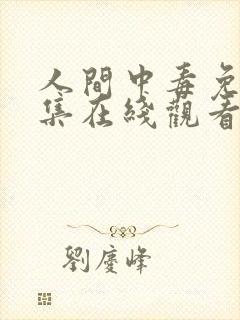 人間中毒免
集在綫觀看
劉慶峰